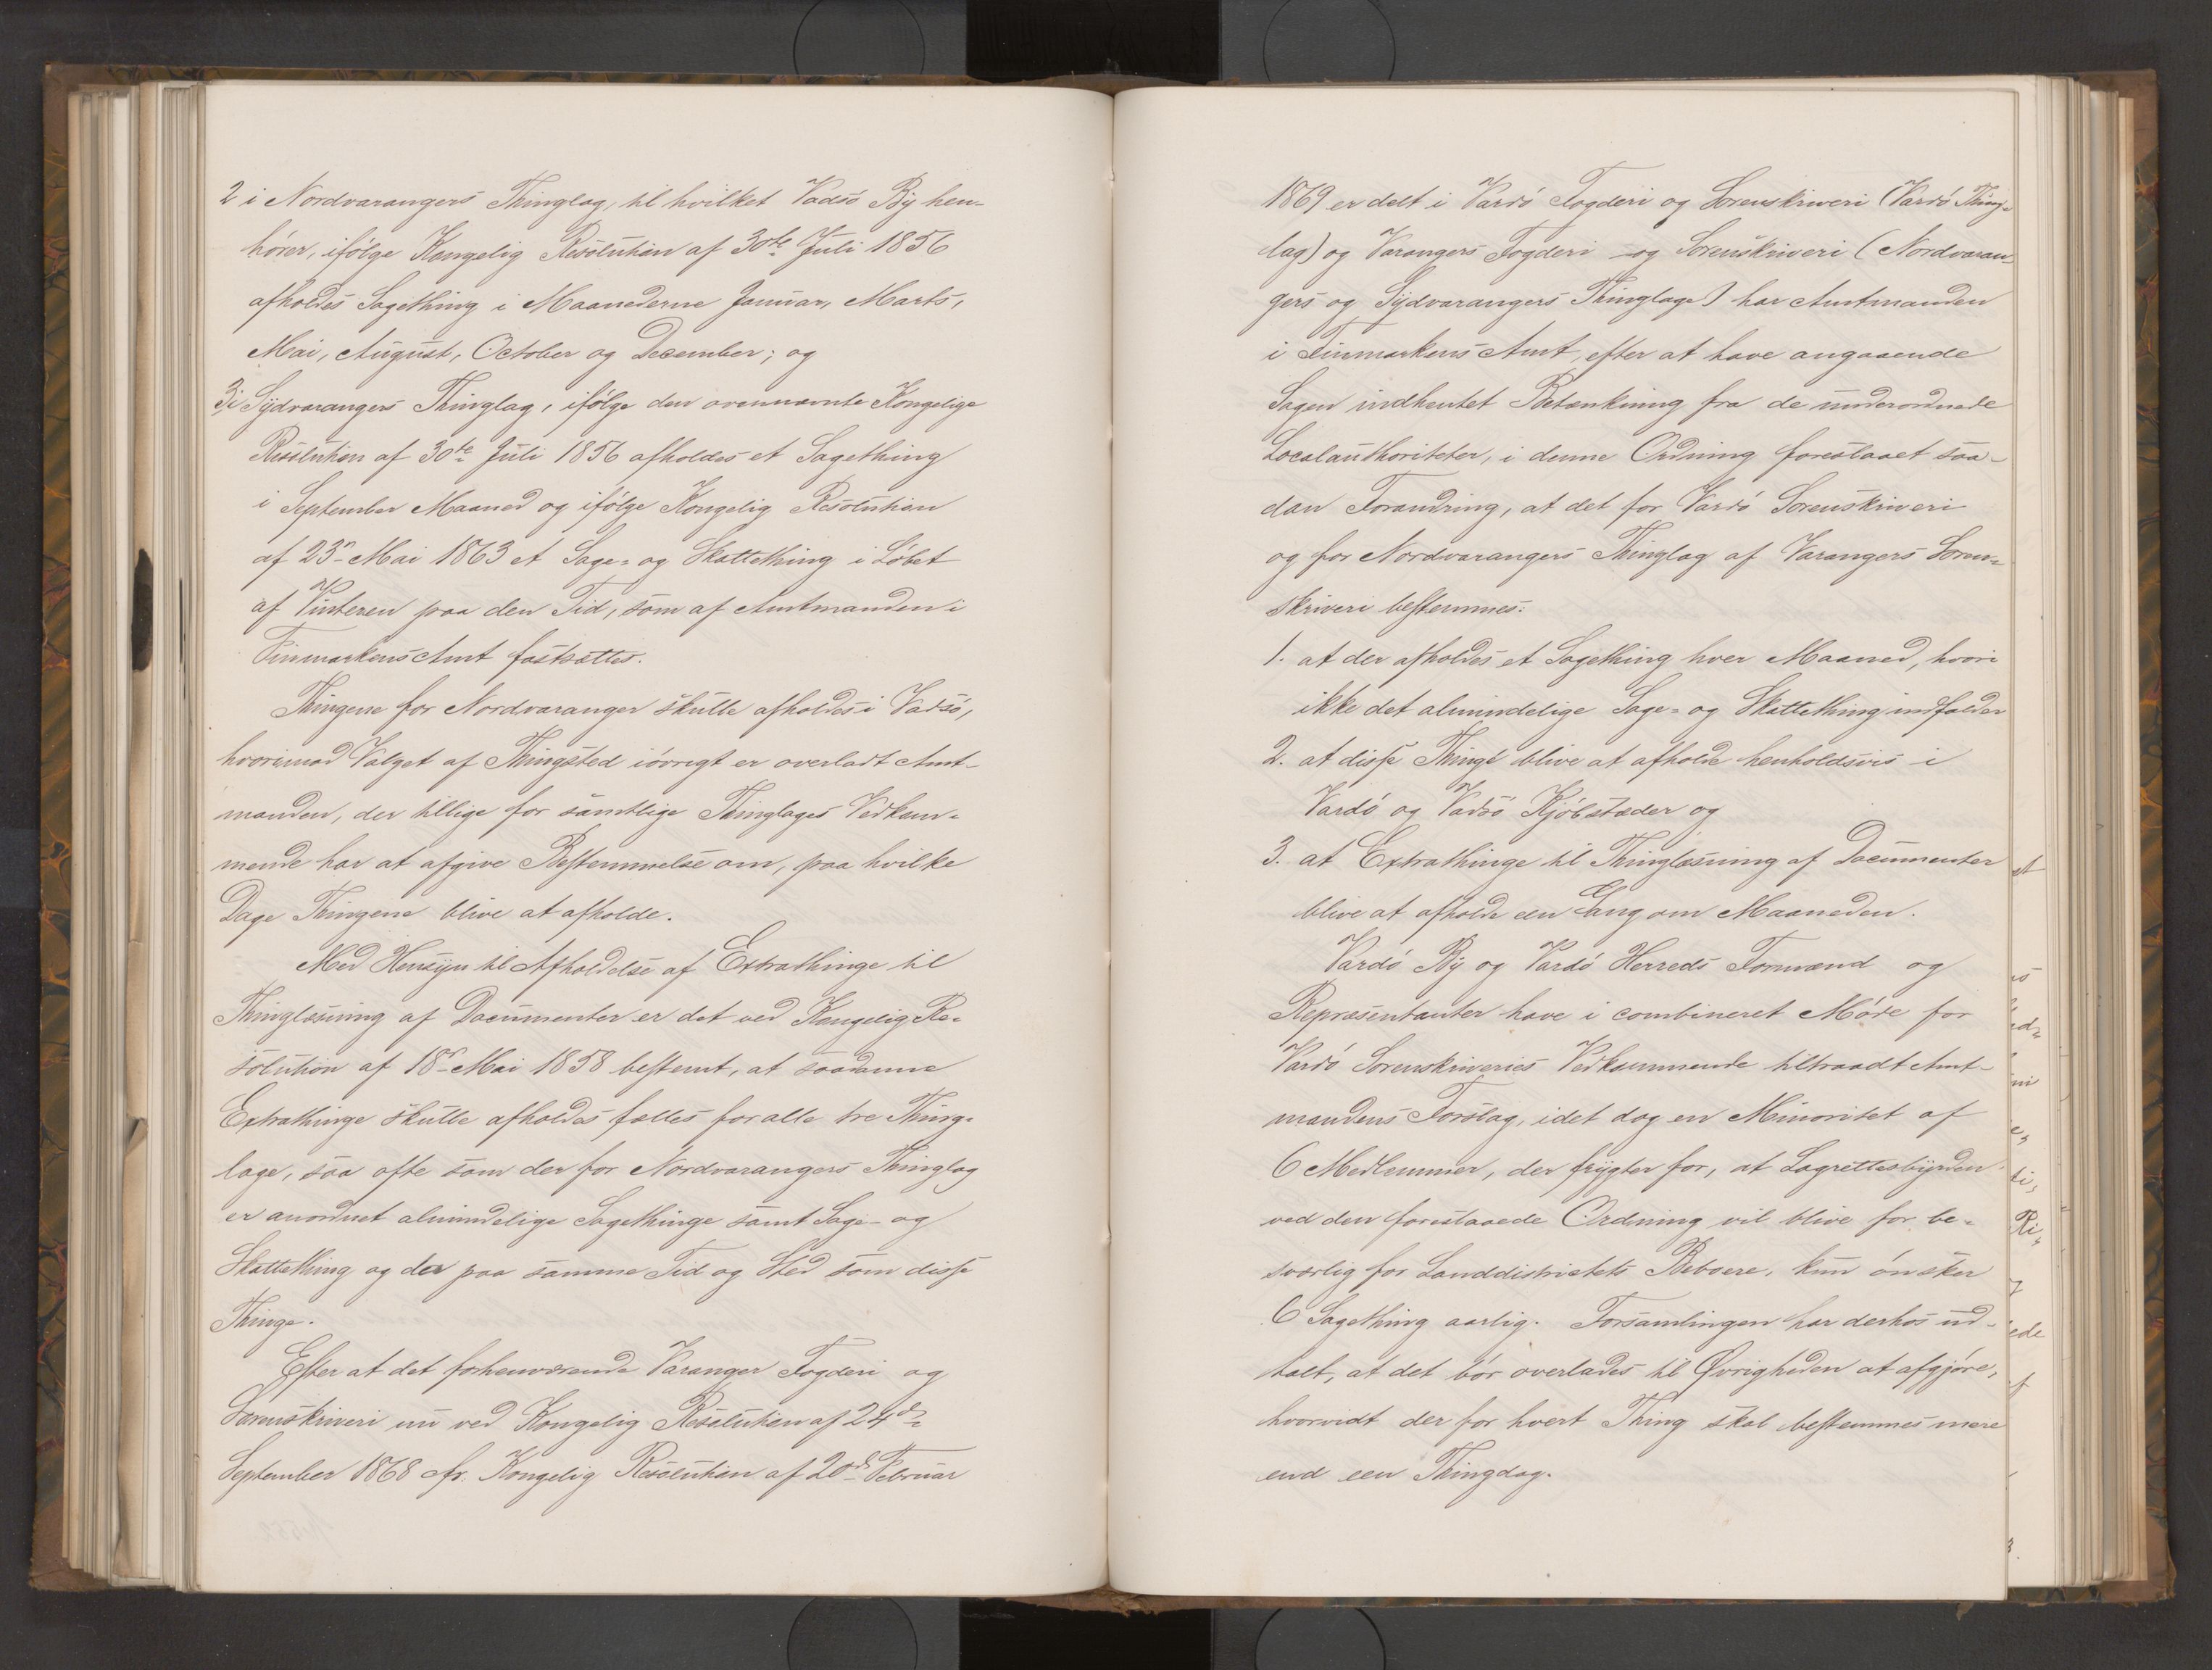 2 i Nordvarangers Thinglag, til hvilket Vadsö By hen-
hörer, ifölge Kongelig Resolution af 30te Juli 1856
afholdes Sagething i Maanederne Januar, Marts,
Mai, August, October og December; og
3, i Sydvarangers Thinglag, ifölge den ovennævnte Kongelige
Resolution af 30te Juli 1856 afholdes et Sagething
i September Maaned og ifölge Kongelig Resolution
af 23n Mai 1863 et Sage- og Skattething i Löbet
af Vinteren paa den Tid, som af Amtmanden i
Finmarkens Amt fastsættes.
Thingene for Nordvaranger skulle afholdes i Vadsö,
hvorimod Valget af Thingsted iövrigt er overladt Amt-
manden, der tillige for samtlige Thinglages Vedkom-
mende har at afgive Bestemmelse om, paa hvilke
Dage Thingene blive at afholde.
Med Hensyn til Afholdelse af Extrathinge til
Thinglæsning af Documenter er det ved Kongelig Re-
solution af 18n Mai 1858 bestemt, at saadanne
Extrathinge skulle afholdes fælles for alle tre Thing-
lage, saa ofte som der for Nordvarangers Thinglag
er anordnet almindelige Sagethinge samt Sage- og
Skattething og da paa samme Tid og Sted som disse
Thinge.
Efter at det forhenværende Varanger Fogderi og
Sorenskriveri nu ved Kongelig Resolution af 24de
September 1868 cfr. Kongelig Resolution af 20de Februar
1869 er delt i Vardö Fogderi og Sorenskriveri (Vardö Thing-
lag) og Varangers Fogderi og Sorenskriveri (Nordvaran-
gers og Sydvarangers Thinglage) har Amtmanden
i Finmarkens Amt, efter at have angaaende
Sagen indhentet Betænkning fra de underordnede
Localauthoriteter, i denne Ordning foreslaaet saa-
dan Forandring, at det for Vardö Sorenskriveri
og for Nordvarangers Thinglag af Varangers Soren-
skriveri bestemmes:
1. at der afholdes et Sagething hver Maaned, hvori
ikke det almindelige Sage- og Skattething indfalder
2. at disse Thinge blive at afholde henholdsvis i
Vardö og Vadsö Kjöbstæder og
3. at Extrathinge til Thinglæsning af Documenter
blive at afholde een Gang om Maaneden.
Vardö By og Vardö Herreds Formænd og
Repræsentanter have i combineret Möde for
Vardö Sorenskriveries Vedkommende tiltraadt Amt-
mandens Forslag, idet dog en Minoritet af
6 Medlemmer, der frygter for, at Lagrettesbyrden
ved den foreslaaede Ordning vil blive for be-
sværlig for Landdistrictets Beboere, kun önsker
6 Sagething aarlig. Forsamlingen har derhos ud-
talt, at det bör overlades til Øvrigheden at afgjöre,
hvorvidt der for hvert Thing skal bestemmes mere
end een Thingdag.